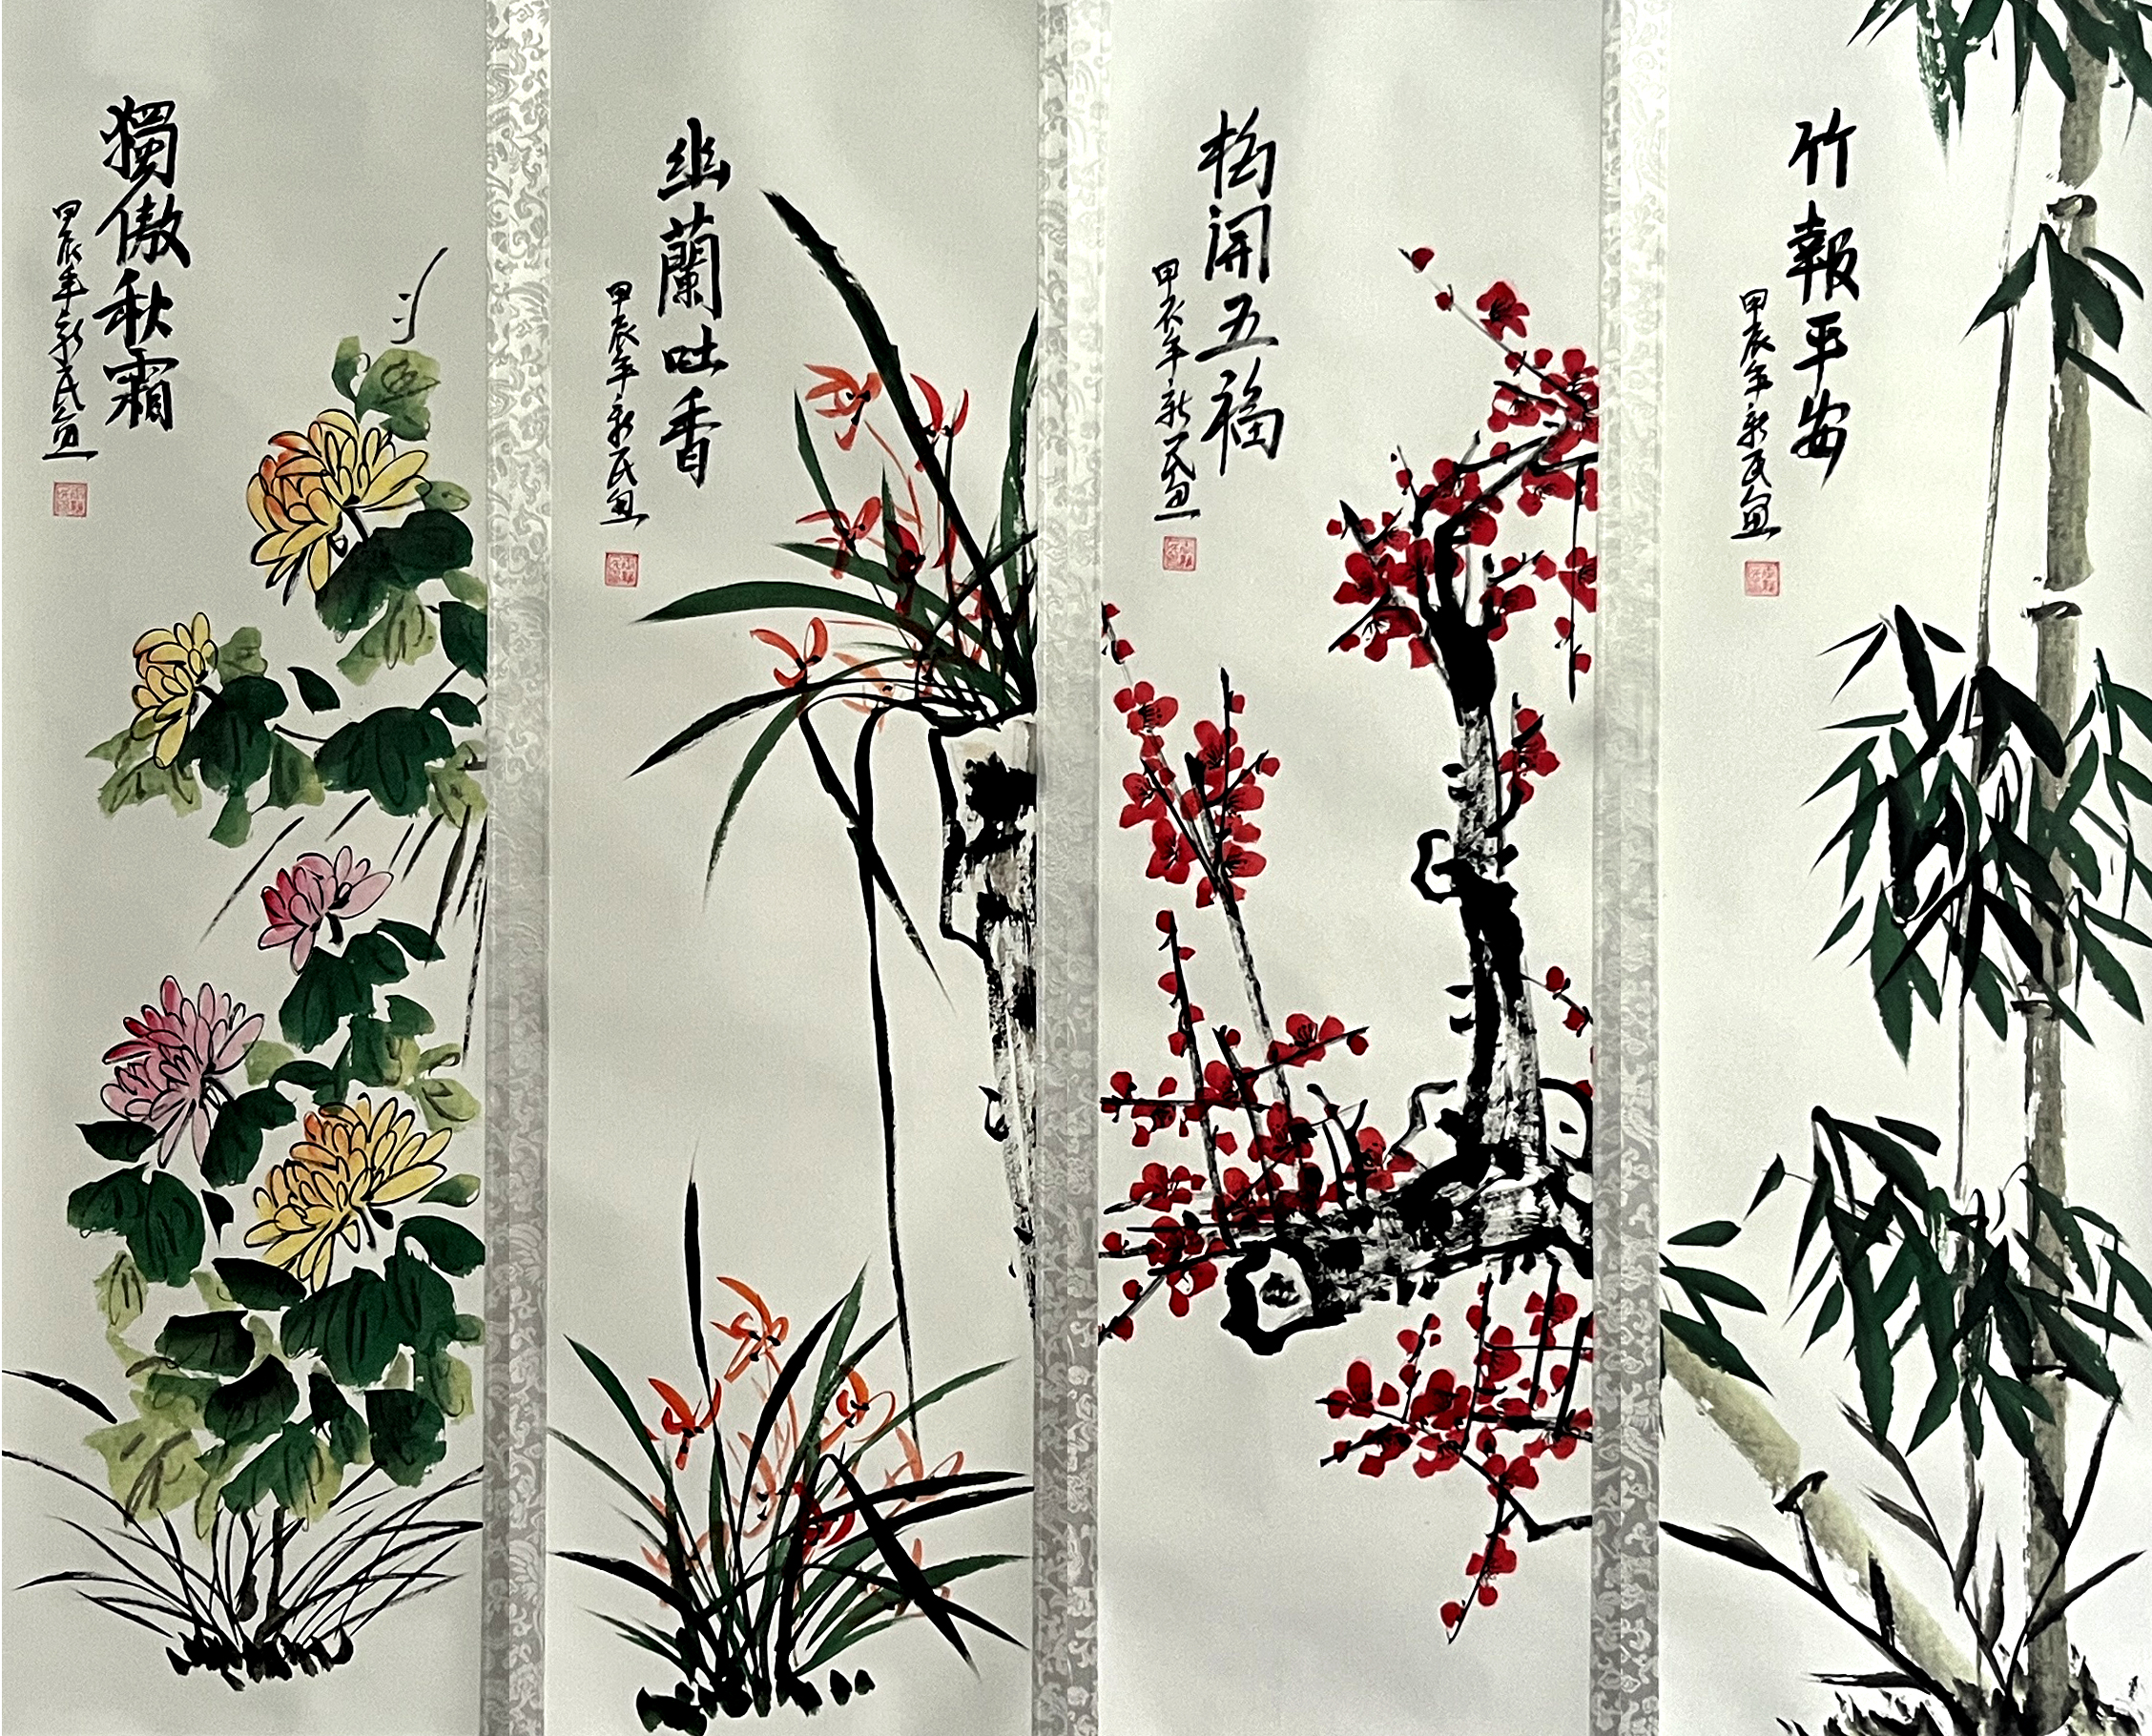 竹報平安
甲辰年新民画
梅開五福
甲辰年新民画
幽蘭吐香
甲辰年新民画
獨傲秋霜
甲辰年新民画